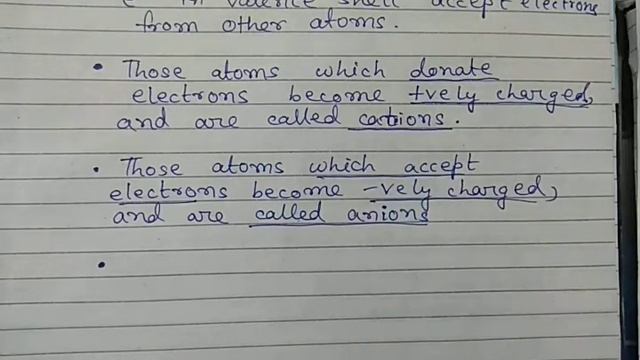 in valence shell accept electrons
from other atoms.
• Those atoms which donate
electrons become +vely charged,
and are called cations.
• Those atoms which accept
electrons become -vely charged,
and are called anions
•